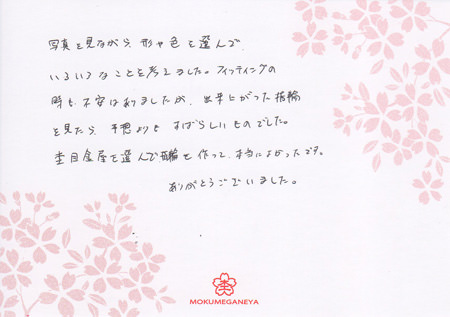 写真を見ながら、形や色を選んで、
いろいろなことを考えました。フィッティングの
時も不安はありましたが、出来上がった指輪
を見たら、予想よりも すばらしいものでした。
杢目金屋を選んで指輪を作って、本当によかったです。
ありがとうございました。
杢
MOKUMEGANEYA